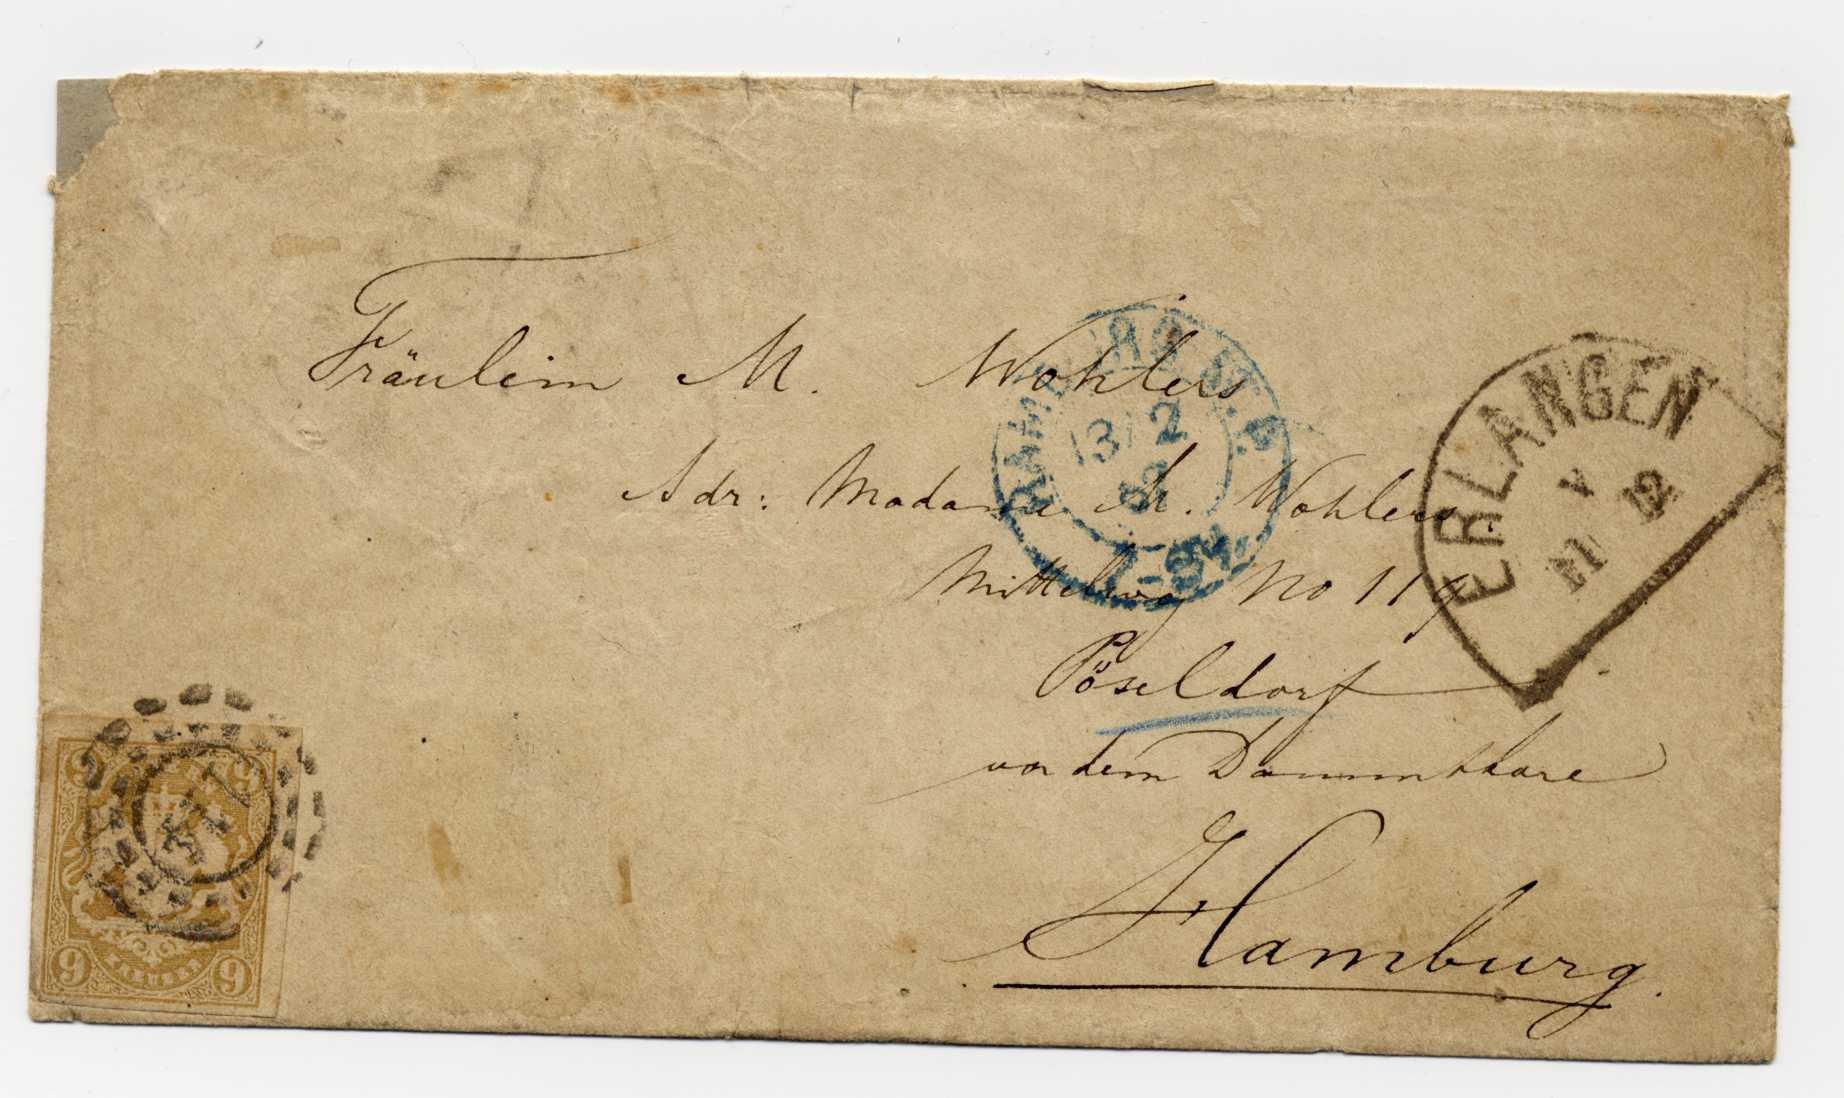 Fräulein M. Wohlers
Adr: Madame M. Wohlers.
Mittelweg No 119
Pöseldorf
vor dem Dammthore
Hamburg.
HAMBURG ST.P.
13/2
68
ERLANGEN
V
11 12
9 9
KREUZER
9 9